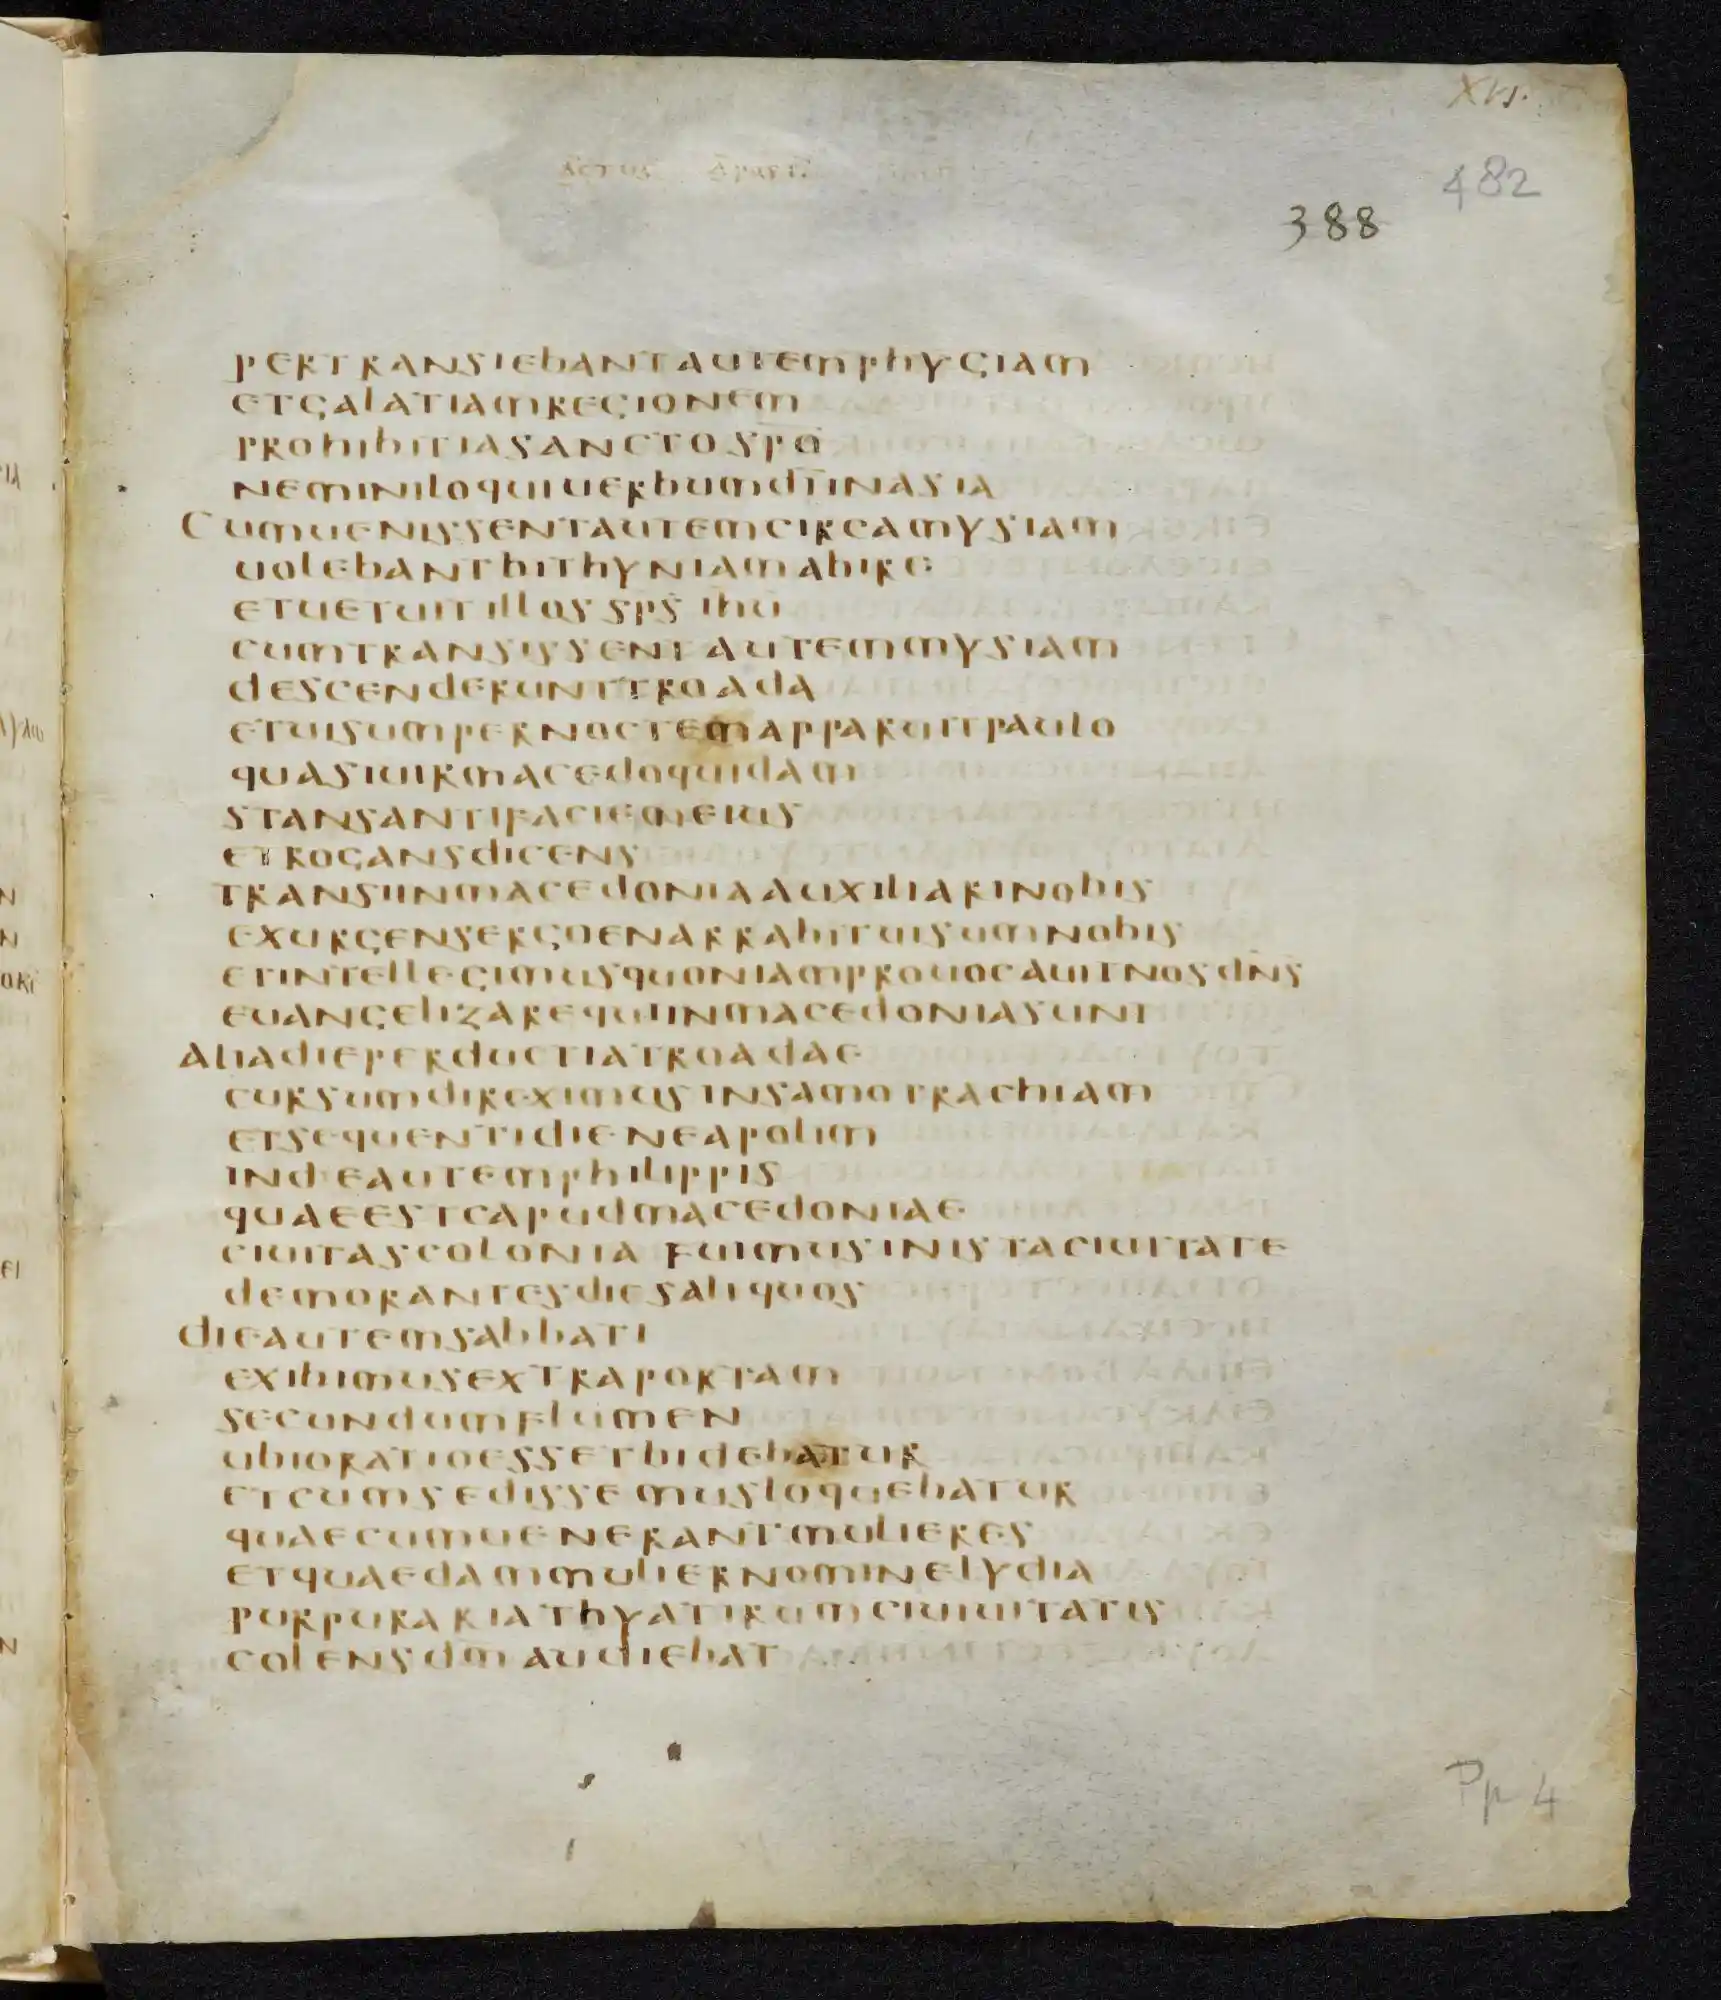 XVI.
482
388
pertransiebantautemphygiam
etgalatiamregionem
prohibitiasanctosp̄o
neminiloquiuerbumdīinasia
Cumuenissentautemcircamysiam
uolebantbithyniamabire
etuetuitillos sp̄s ihū
cumtransissent autemmysiam
descenderunttroada
etuisumpernoctemapparuitpaulo
quasiuirmacedoquidam
stansantifaciemeius
etrogansdicens
transiinmacedoniaauxiliarinobis
exurgensergoenarrabituisumnobis
etintellegimusquoniamprouocauitnosdn̄s
euangelizarequiinmacedoniasunt
aliadieperductiatroadae
cursumdireximusinsamotrachiam
etsequentidieneapolim
indeautemphilippis
quaeestcapudmacedoniae
ciuitascolonia fuimusinistaciuitate
demorantesdiesaliquos
dieautemsabbati
exibimusextraportam
secundumflumen
ubioratioessetbidebatur
etcumsedissemusloquebatur
quaecumuenerantmulieres
etquaedammuliernominelydia
purpurariathyatirumciuiuitatis
colensdm̄ audiebat
Pp 4